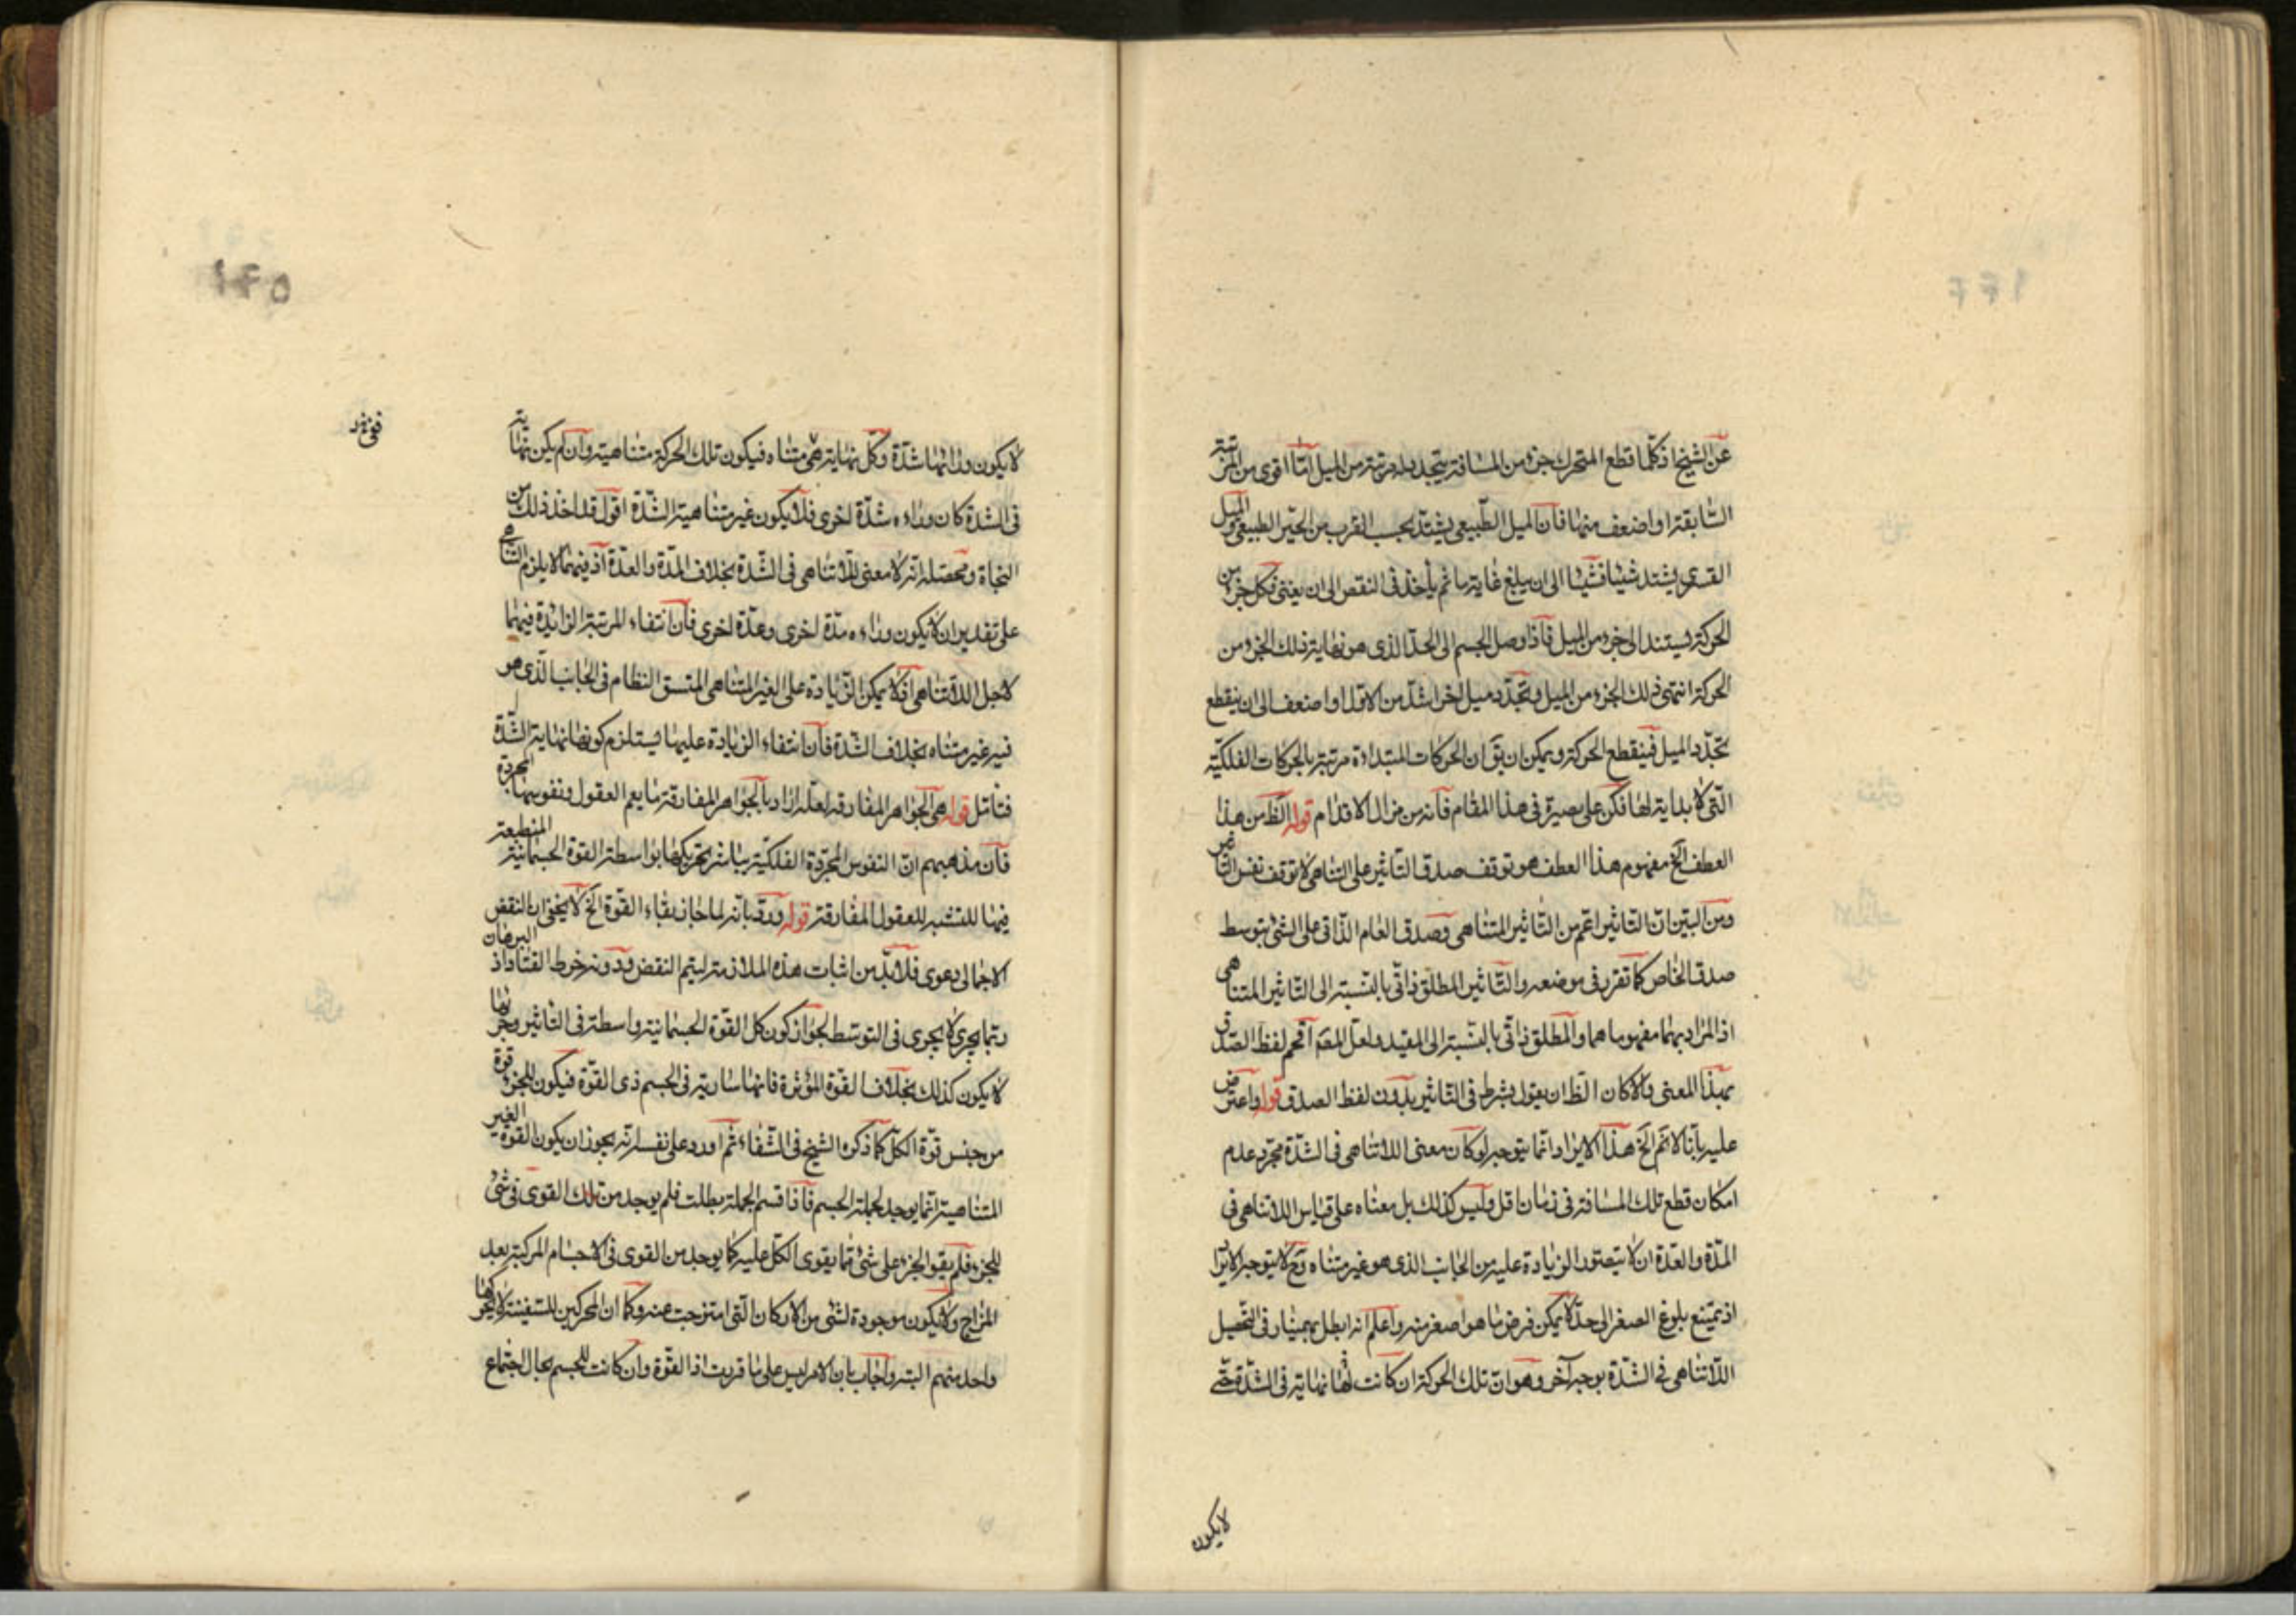 ١٤٤
عن الشيخ اذ كلما قطع المتحرك جزء من المسافة يتجدد له مرتبة من الميل امّا اقوى من المرتبة
السّابقة او اضعف منها فان الميل الطّبيعى يشتد بحسب القرب من الحيّز الطبيعى والميل
القسرى يشتد شيئا فشيئا الى ان يبلغ غاية ما ثم يأخذ فى النقص الى ان يفنى فكل جزء من
الحركة يستند الى جزء من الميل فاذا وصل الجسم الى الحدّ الذى هو نهاية ذلك الجزء من
الحركة انتهى ذلك الجزء من الميل وتجدّد ميل اخر اشدّ من الاول او اضعف الى ان ينقطع
تجدّد الميل فينقطع الحركة ويمكن ان يقّ ان الحركات المبتداة مرتبة بالحركات الفلكيّة
الّتى لا بداية لها فكن على بصيرة فى هذا المقام فانه من مزال الاقدام قوله الظ من هذا
العطف الخ مفهوم هذا العطف هو توقف صدق التأثير على التناهى لا توقف نفس التأثير
ومن البيّن انّ التأثير اعم من التأثير المتناهى وصدق العام الذّاتى على الشئ بتوسط
صدق الخاص كما تقرر فى موضعه والتّأثير المطلق ذاتّى بالنسبة الى التّأثير المتناهى
اذ المراد بهما مفهوما هما والمطلق ذاتّى بالنّسبة الى المقيد ولعلّ المصّ اقحم لفظ الصّدق
بهذا المعنى والا كان الظّ ان يقول يشترط فى التأثير بدون لفظ الصدق قوله واعترض
عليه بانّا لا نم الخ هذا الايراد انّما يتوجه لو كان معنى اللا تناهى فى الشدّة مجرّد عدم
امكان قطع تلك المسافة فى زمان اقل وليس كذلك بل معناه على قياس اللا تناهى فى
المدّة والعدّة ان لا يتصوّر الزيادة عليه من الجانب الذى هو غير متناه وح لا يتوجه الايراد
اذ يمتنع بلوغ الصغر الى حدّ لا يمكن فرض ما هو اصغر منه واعلم انه ابطل بهمنيار فى التّحصيل
اللّا تناهى فى الشدّة بوجه آخر وهو انّ تلك الحركة ان كانت لها نهاية فى الشدّة حتّى
لا يكون
١٤٥
لا يكون وراءها شدّة وكلّ نهاية فهى متناه فيكون تلك الحركة متناهية وان لم يكن نهاية
فى الشدة كان وراءه شدّة اخرى فلا يكون غير متناهية الشّدّة اقول قد اخذ ذلك من
النجاة ومحصّله انه لا معنى للّا تناهى فى الشّدة بخلاف المدّة والعدّة اذ فيهما لا يلزم التناهى
على تقدير ان لا يكون وراءه مدّة اخرى وعدّة اخرى فان انتفاء المرتبة الزائدة فيهما
لاجل اللا تناهى اذ لا يمكن الزّيادة على الغير المتناهى المتسق النظام فى الجانب الّذى هو
فيه غير متناه بخلاف الشّدة فان انتفاء الزيادة عليها يستلزم كونها نهاية الشّدّة
فتأمّل قوله هى الجواهر المفارقة لعلّه اراد بالجواهر المفارقة ما يعم العقول ونفوسها المجردة
فان مذهبهم انّ النفوس المجرّدة الفلكيّة يباشر تحريكها بواسطة القوة الجسمانية المنطبعة
فيها للتشبه للعقول المفارقة قوله وردّ بانّه لما جاز بقاء القوة الخ لا يخفى ان النقض
الاجمالى دعوى فلا بدّ من اثبات هذه الملازمة ليتم النقض ودونه خرط القتاد اذ البرهان
ربّما يجرى لا يجرى فى التوسّط لجواز كون كل القوّة الجسمانية واسطة فى التأثير وجزئها
لا يكون كذلك بخلاف القوّة المؤثرة فانها سارية فى الجسم ذى القوّة فيكون للجزء قوة
من جنس قوّة الكلّ كما ذكره الشيخ فى الشّفاء ثم اورد على نفسه انّه يجوز ان يكون القوة الغير
المتناهية انّما يوجد لجملة الجسم فاذا قسم الجملة بطلت فلم يوجد من تلك القوى فى شئ
للجزء فلم يقو الجزء على شئ مّما يقوى الكلّ عليه كما يوجد من القوى فى الاجسام المركبة بعد
المزاج ولا يكون موجودة لشئ من الاركان الّتى امتزجت عنه وكما ان المحركين للسفينة لا يحركها
واحد منهم البتة واجاب بان الامر ليس على ما قربت اذ القوّة وان كانت للجسم بحال اجتماع